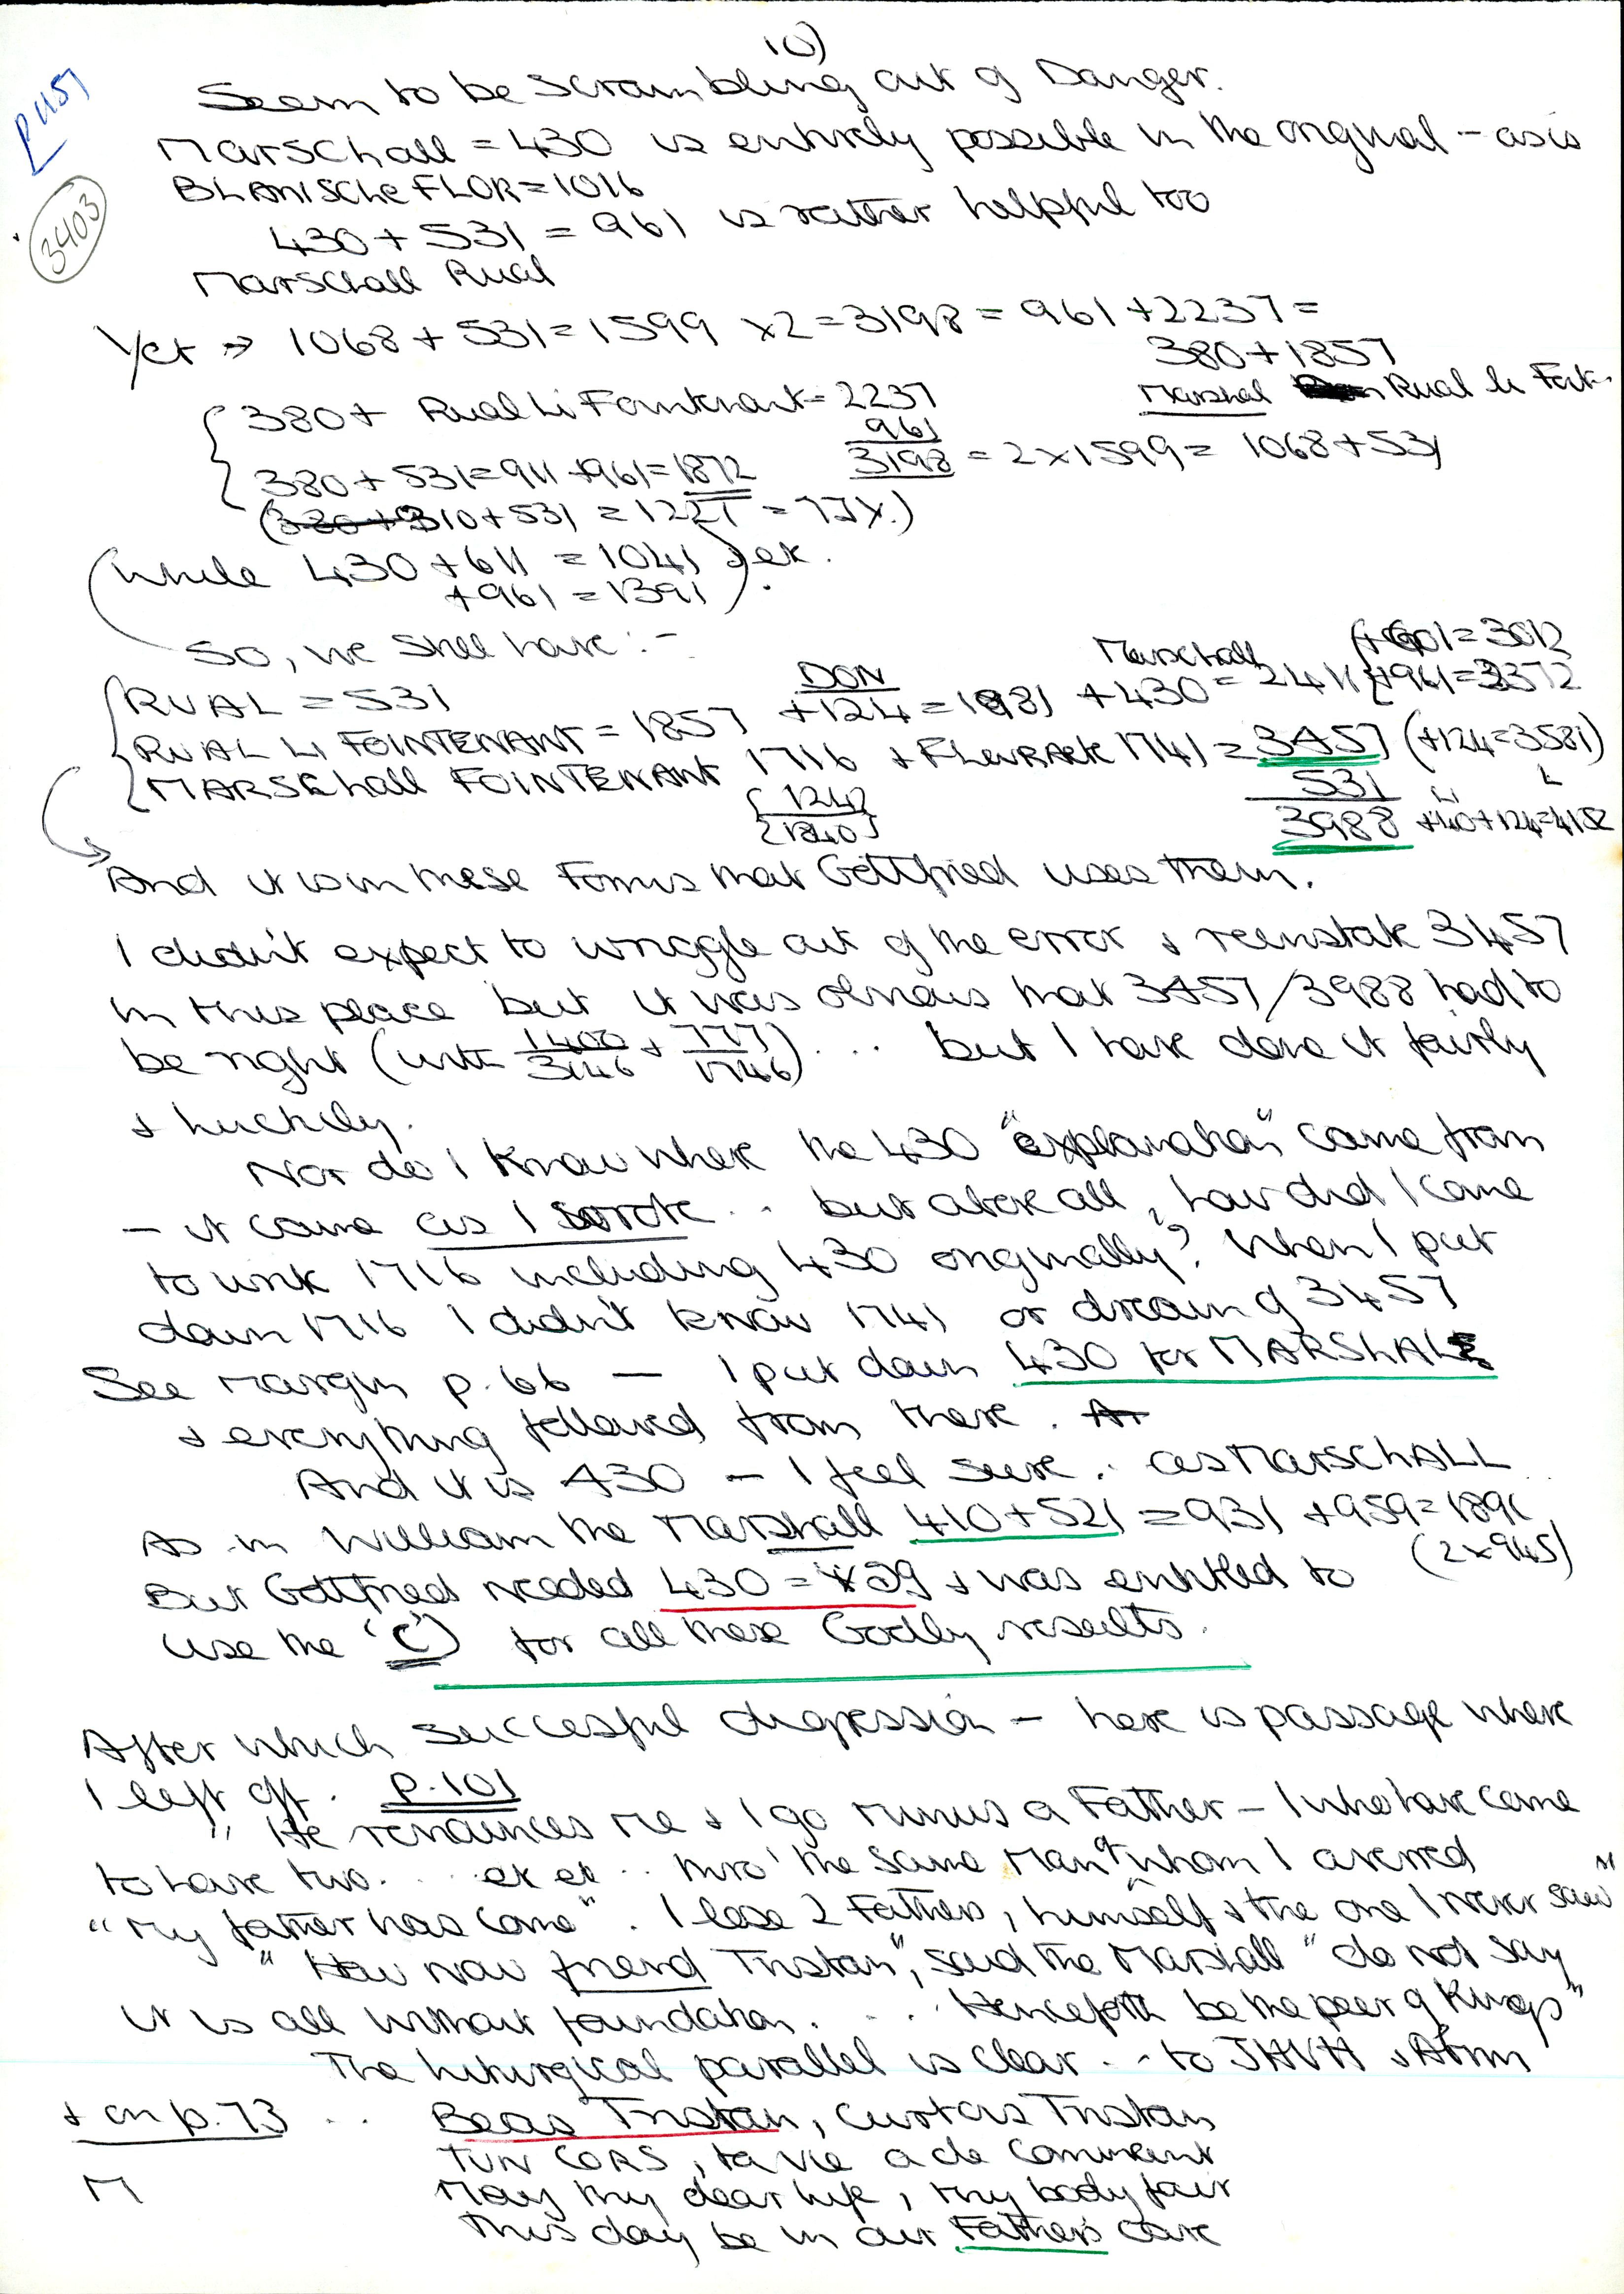 10)
Seem to be scrambling out of Danger.
3403
Marschall = 430 is entirely possible in the original - as is
BLANische FLOR = 1016
430 + 531 = 961 is rather helpful too
Marschall Rual
Yet → 1068 + 531 = 1599 x2 = 3198 = 961 + 2237 =
380 + 1857
Marshal Rual li Foit.
380 + Rual Li Fointenant = 2237
961
3198 = 2 x 1599 = 1068 + 531
380 + 531 = 911 + 961 = 1872
310 + 531 =
(while 430 + 611 = 1041 ) etc.
+ 961 = 1391
So, we shall have :-
RUAL = 531
RUAL Li FOINTENANT = 1857 DON + 124 = 1981 Marschall + 430 = 2411
+961 = 3372
MARSChall FOINTENANT 1716 + Fleuraete 1741 = 3457 (+124 = 3581)
531
3988
And it is in these Forms that Gottfried uses them.
I didn't expect to wriggle out of the error & reinstate 3457
in this place but it was obvious that 3457/3988 had to
be right (with 1400/3146 + 777/1746) ... but I have done it fairly
& luckily.
Nor do I know where the 430 "explanation" came from
- it came as I wrote .. but above all, how did I come
to write 1716 including 430 originally? When I put
down 1716 I didn't know 1741 or dream of 3457
See Margin p. 66 — I put down 430 for MARSHALL
& everything followed from there.
And it is 430 - I feel sure . as MARSCHALL
As in William the Marshall 410 + 521 = 931 + 959 = 1890
(2 x 945)
But Gottfried needed 430 = & was entitled to
use the 'C' for all these Godly results.
After which successful digression - here is passage where
I left off. p. 101
" He renounces me & I go minus a Father - I who have come
to have two. . . et et .. thro' the same Man of whom I averred
"My father has come". I lose 2 Fathers, himself & the one I never saw"
" How now friend Tristan", said the Marshall "do not say
it is all without foundation. . . . Henceforth be the peer of Kings"
The liturgical parallel is clear .. to JHVH & Atum
& on p. 73 .. Beas Tristan, Curtois Tristan
TUN CORS, ta vie a de comment
M May thy dear life, thy body fair
This day be in our Father's care